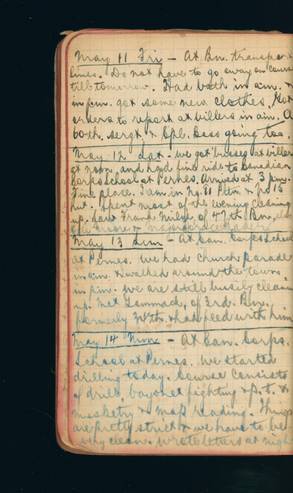 May 11 Fri - At Bn. transport
lines. Do not have to go away on course
till tomorrow. Had bath in a.m. &
in p.m. got some new clothes. Got
orders to report at Villers in a.m. A
both. sergt & Cpl. Cass going too.
May 12 Sat. - We got busses at Villers
at noon, and had fine ride to Canadian
Corps School at Pernes. Arrived at 3 p.m.
Fine place. I am in No. 11 Pltn & 
hut. Spent most of the evening cleaning
up. Saw Frank Milne of 47th Bn.
May 13 Sun - At Can. Corps School
at Pernes. We had Church parade
in a.m. & walked around the town
in p.m. We are still busily cleaning
up. Met of 3rd Bn.
formerly & had feed with him
May 14 Mon - At Can. Corps.
School at Pernes. We started
drilling today. Course consists
of drill, bayonet fighting & P.T. &
musketry & map reading. Things
are pretty strict & we have to be
very clean. Wrote letters at night